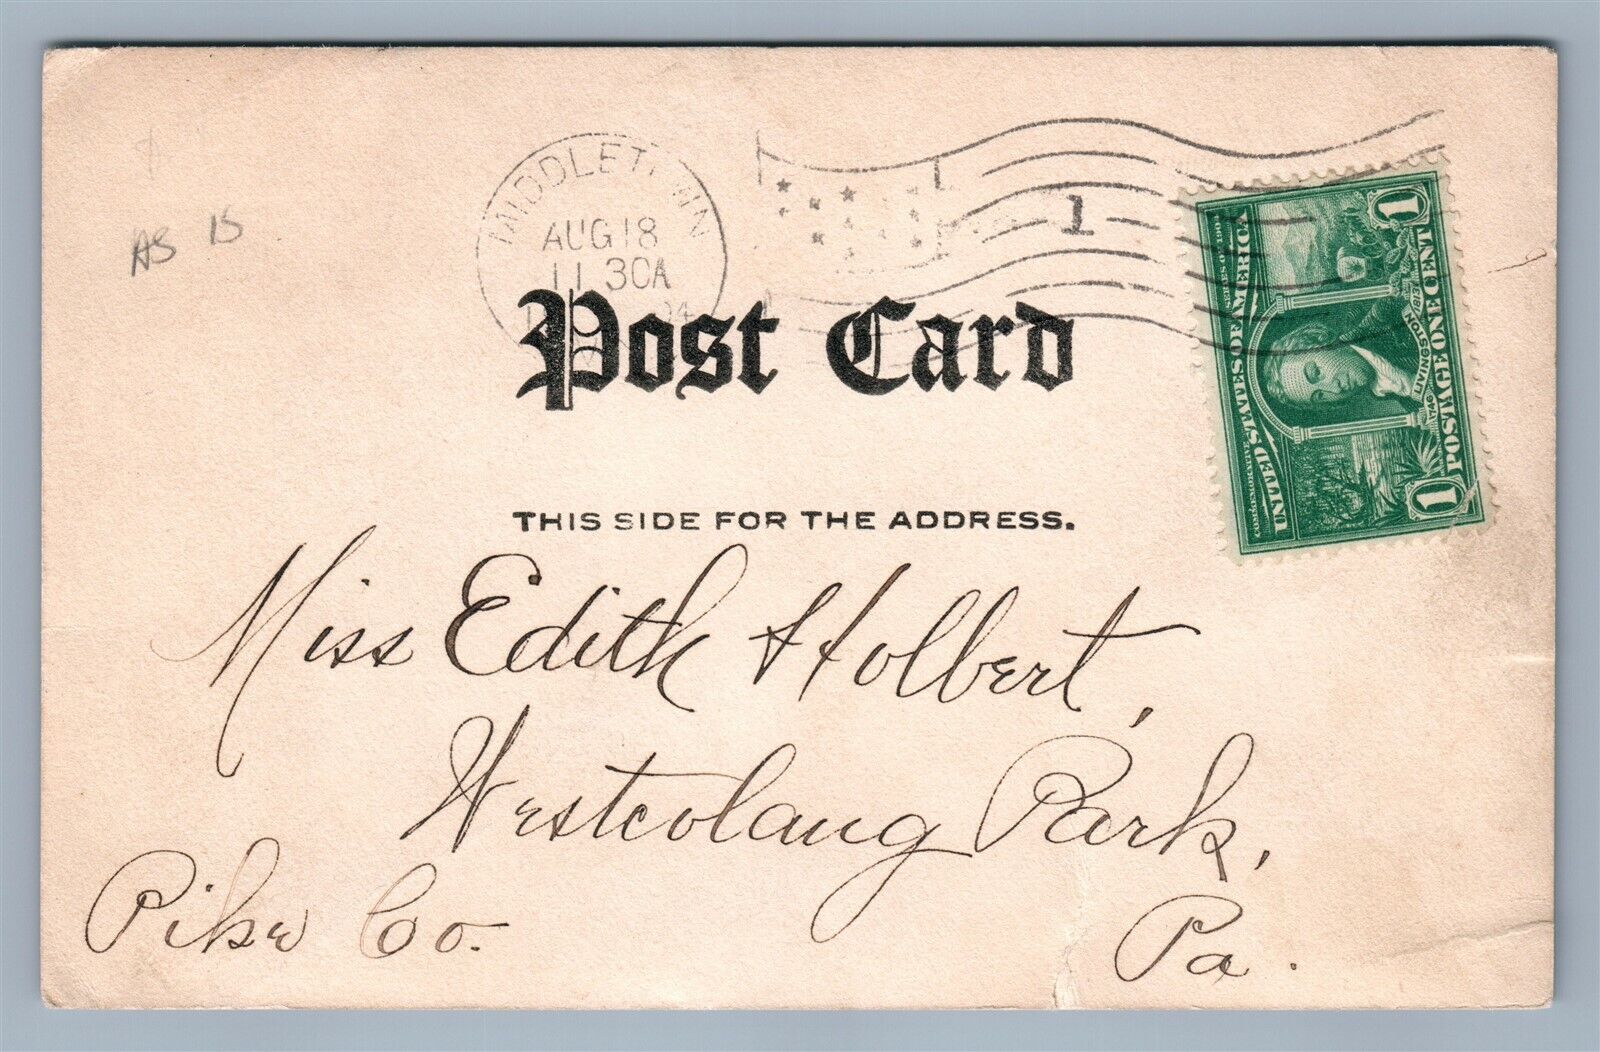 MIDDLETOWN
AUG 18
11 30A
1
AS 15
Post Card
THIS SIDE FOR THE ADDRESS.
SERIES OF 1904
UNITED STATES OF AMERICA
LIVINGSTON
POSTAGE ONE CENT
1 1
Miss Edith Holbert,
Westcolang Park,
Pike Co.
Pa.